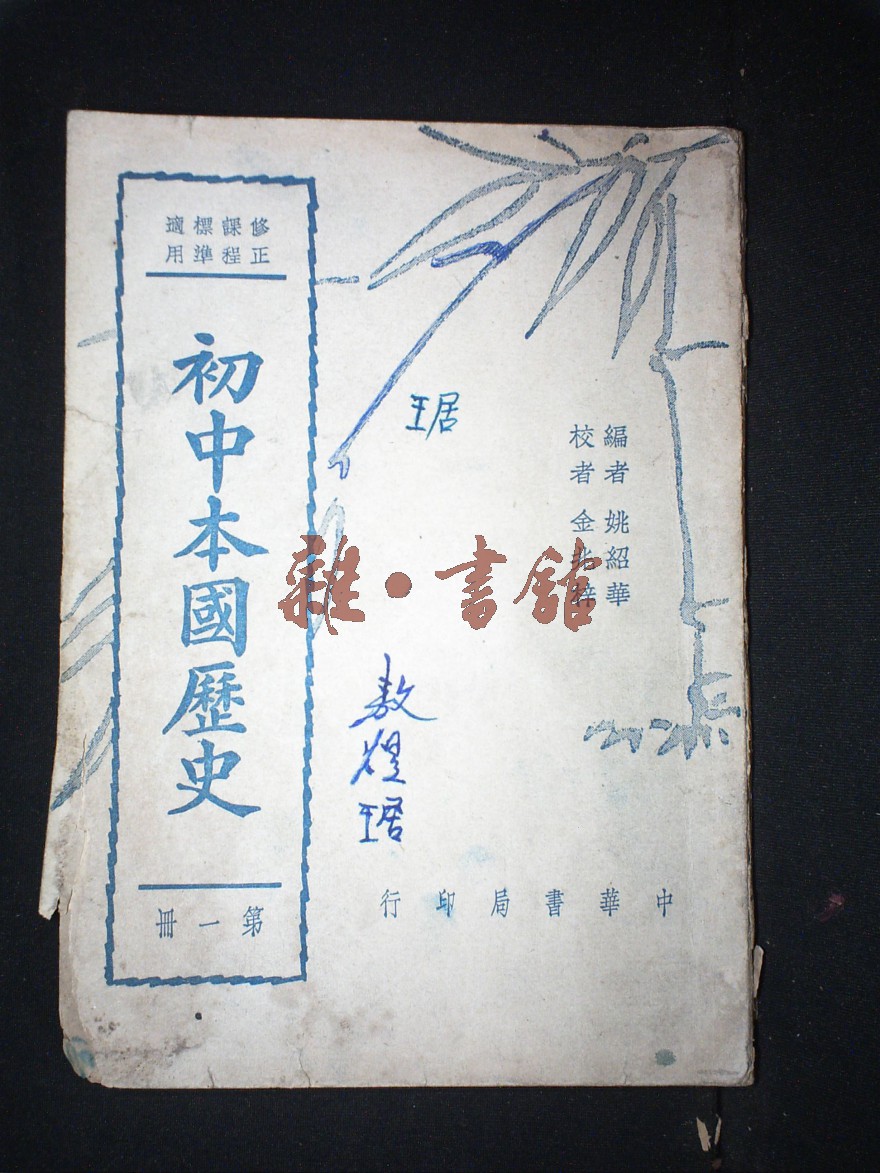 修正課程標準適用
初中本國歷史
第一冊
編者 姚紹華
校者 金兆梓
中華書局印行
琚
敖煜琚
雜·書館